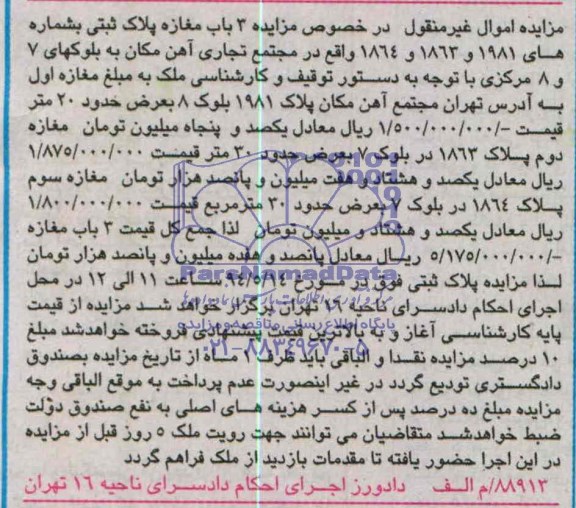 مزایده اموال غیرمنقول در خصوص مزایده ۳ باب مغازه پلاک ثبتی بشماره
های ۱۹۸۱ و ۱۸۶۳ و ۱۸۶۴ واقع در مجتمع تجاری آهن مکان به بلوکهای ۷
و ۸ مرکزی با توجه به دستور توقیف و کارشناسی ملک به مبلغ مغازه اول
به آدرس تهران مجتمع آهن مکان پلاک ۱۹۸۱ بلوک ۸ بعرض حدود ۲۰ متر
قیمت -/۱/۵۰۰/۰۰۰/۰۰۰ ریال معادل یکصد و پنجاه میلیون تومان مغازه
دوم پلاک ۱۸۶۳ در بلوک ۷ بعرض حدود ۳۰ متر قیمت ۱/۸۷۵/۰۰۰/۰۰۰
ریال معادل یکصد و هشتاد و هفت میلیون و پانصد هزار تومان مغازه سوم
پلاک ۱۸۶۴ در بلوک ۷ بعرض حدود ۳۰ مترمربع قیمت ۱/۸۰۰/۰۰۰/۰۰۰
ریال معادل یکصد و هشتاد و میلیون تومان لذا جمع کل قیمت ۳ باب مغازه
-/۵/۱۷۵/۰۰۰/۰۰۰ ریال معادل پانصد و هفده میلیون و پانصد هزار تومان
لذا مزایده پلاک ثبتی فوق در مورخ ۹۴/۵/۱۴ ساعت ۱۱ الی ۱۲ در محل
اجرای احکام دادسرای ناحیه ۱۶ تهران برگزار خواهد شد مزایده از قیمت
پایه کارشناسی آغاز و به بالاترین قیمت پیشنهادی فروخته خواهدشد مبلغ
۱۰ درصد مزایده نقدا و الباقی باید ظرف ۱ ماه از تاریخ مزایده بصندوق
دادگستری تودیع گردد در غیر اینصورت عدم پرداخت به موقع الباقی وجه
مزایده مبلغ ده درصد پس از کسر هزینه های اصلی به نفع صندوق دولت
ضبط خواهدشد متقاضیان می توانند جهت رویت ملک ۵ روز قبل از مزایده
در این اجرا حضور یافته تا مقدمات بازدید از ملک فراهم گردد
۸۸۹۱۳/م الف دادورز اجرای احکام دادسرای ناحیه ۱۶ تهران
ParsNamadData
پایگاه اطلاع رسانی مناقصه و مزایده
۰۲۱-۸۸۳۴۹۶۷۰-۵